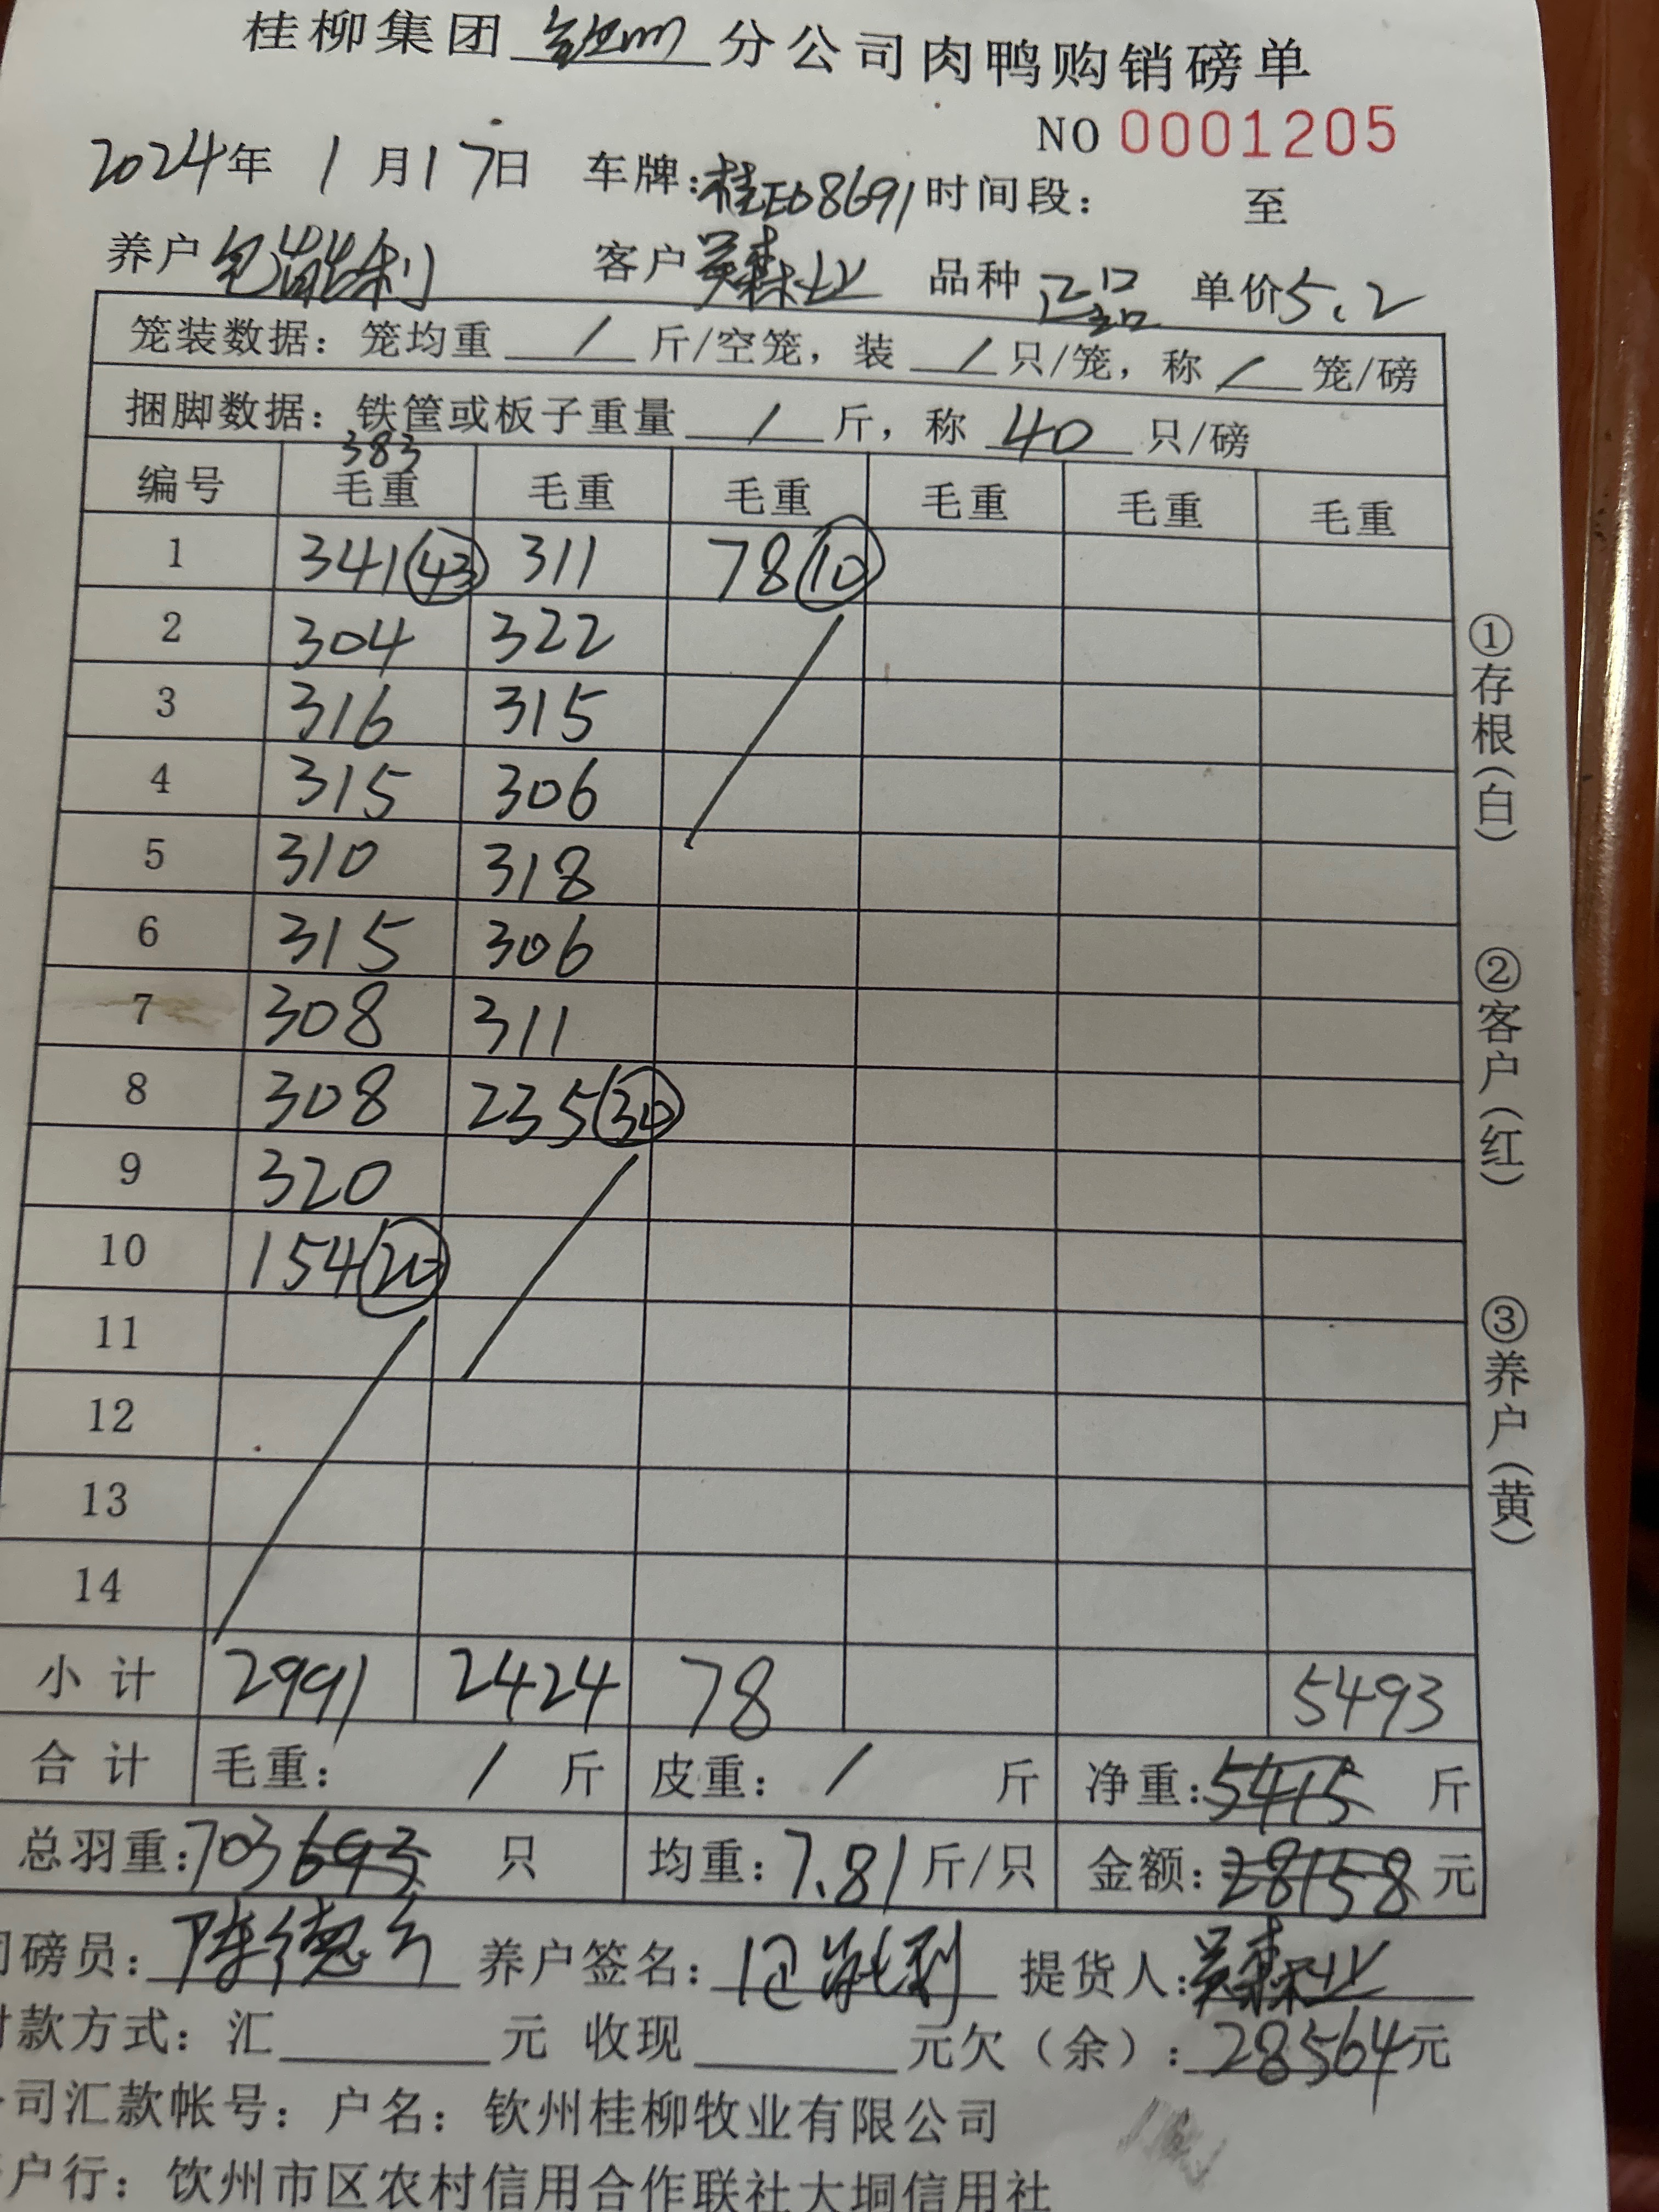 桂柳集团 钦州 分公司肉鸭购销磅单
NO 0001205
2024年 1月17日 车牌:桂E08691 时间段: 至
养户 包能利 客户 吴森业 品种 正品 单价5.2
笼装数据: 笼均重 / 斤/空笼, 装 / 只/笼, 称 / 笼/磅
捆脚数据: 铁筐或板子重量 / 斤, 称 40 只/磅
383
编号 毛重 毛重 毛重 毛重 毛重 毛重
1 341 43 311 78 10
2 304 322
3 316 315
4 315 306
5 310 318
6 315 306
7 308 311
8 308 235 30
9 320
10 154 20
11
12
13
14
小计 2991 2424 78 5493
合计 毛重: / 斤 皮重: / 斤 净重:5415 斤
总羽重:703 693 只 均重:7.81斤/只 金额:28158元
司磅员: 养户签名: 包能利 提货人:吴森业
付款方式: 汇 元 收现 元欠(余): 28564元
司汇款帐号: 户名: 钦州桂柳牧业有限公司
户行: 钦州市区农村信用合作联社大垌信用社
①存根(白)
②客户(红)
③养户(黄)